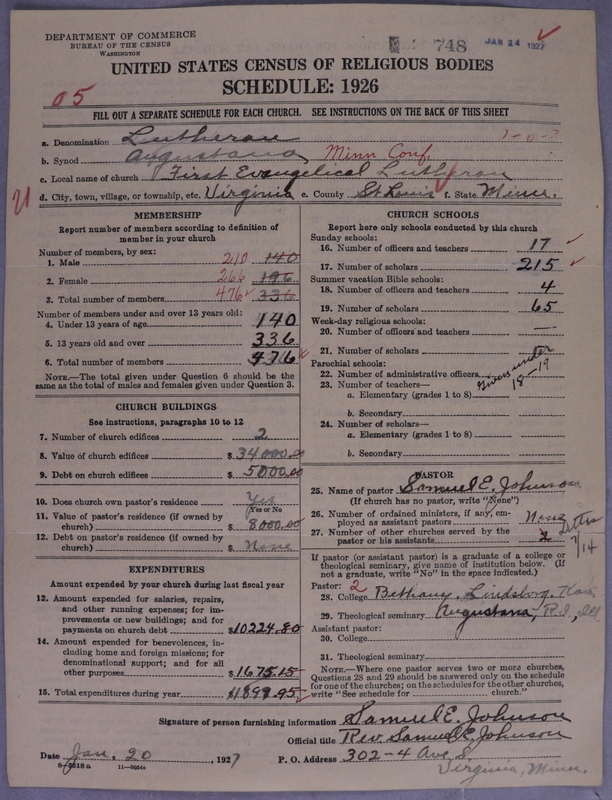 DEPARTMENT OF COMMERCE
BUREAU OF THE CENSUS
WASHINGTON
748
JAN 24 1927
UNITED STATES CENSUS OF RELIGIOUS BODIES
SCHEDULE: 1926
05
FILL OUT A SEPARATE SCHEDULE FOR EACH CHURCH. SEE INSTRUCTIONS ON THE BACK OF THIS SHEET
a. Denomination Lutheran
b. Synod Augustana Minn Conf.
c. Local name of church First Evangelical Lutheran
d. City, town, village, or township, etc. Virginia e. County St Louis f. State Minn.
MEMBERSHIP
Report number of members according to definition of
member in your church
Number of members, by sex:
1. Male 210 140
2. Female 266 196
3. Total number of members 476 336
Number of members under and over 13 years old:
4. Under 13 years of age 140
5. 13 years old and over 336
6. Total number of members 476
NOTE.—The total given under Question 6 should be
same as the total of males and females given under Question 3.
CHURCH BUILDINGS
See instructions, paragraphs 10 to 12
7. Number of church edifices 2
8. Value of church edifices $34000.00
9. Debt on church edifices $5000.00
10. Does church own pastor's residence Yes
(Yes or No)
11. Value of pastor's residence (if owned by
church) $8000.00
12. Debt on pastor's residence (if owned by
church) $None
EXPENDITURES
Amount expended by your church during last fiscal year
13. Amount expended for salaries, repairs,
and other running expenses; for im-
provements or new buildings; and for
payments on church debt $10224.80
14. Amount expended for benevolences, in-
cluding home and foreign missions; for
denominational support; and for all
other purposes $1675.15
15. Total expenditures during year $11899.95
CHURCH SCHOOLS
Report here only schools conducted by this church
Sunday schools:
16. Number of officers and teachers 17
17. Number of scholars 215
Summer vacation Bible schools:
18. Number of officers and teachers 4
19. Number of scholars 65
Week-day religious schools:
20. Number of officers and teachers —
21. Number of scholars
Parochial schools:
22. Number of administrative officers
Given under
18-19
23. Number of teachers—
a. Elementary (grades 1 to 8)
b. Secondary
24. Number of scholars—
a. Elementary (grades 1 to 8)
b. Secondary
PASTOR
25. Name of pastor Samuel E. Johnson
(If church has no pastor, write "None")
26. Number of ordained ministers, if any, em-
ployed as assistant pastors None
27. Number of other churches served by the
pastor or his assistants 2
7/14
If pastor (or assistant pastor) is a graduate of a college or
theological seminary, give name of institution below. (If
not a graduate, write "No" in the space indicated.)
Pastor: 2
28. College Bethany, Lindsborg, Kans
29. Theological seminary Augustana, R.I., Ill
Assistant pastor:
30. College
31. Theological seminary
NOTE.—Where one pastor serves two or more churches,
Questions 28 and 29 should be answered only on the schedule
for one of the churches; on the schedules for the other churches,
write "See schedule for church."
Signature of person furnishing information Samuel E. Johnson
Official title Rev. Samuel E. Johnson
Date Jan. 20 1927 P. O. Address 302-4 Ave S.
Virginia, Minn.